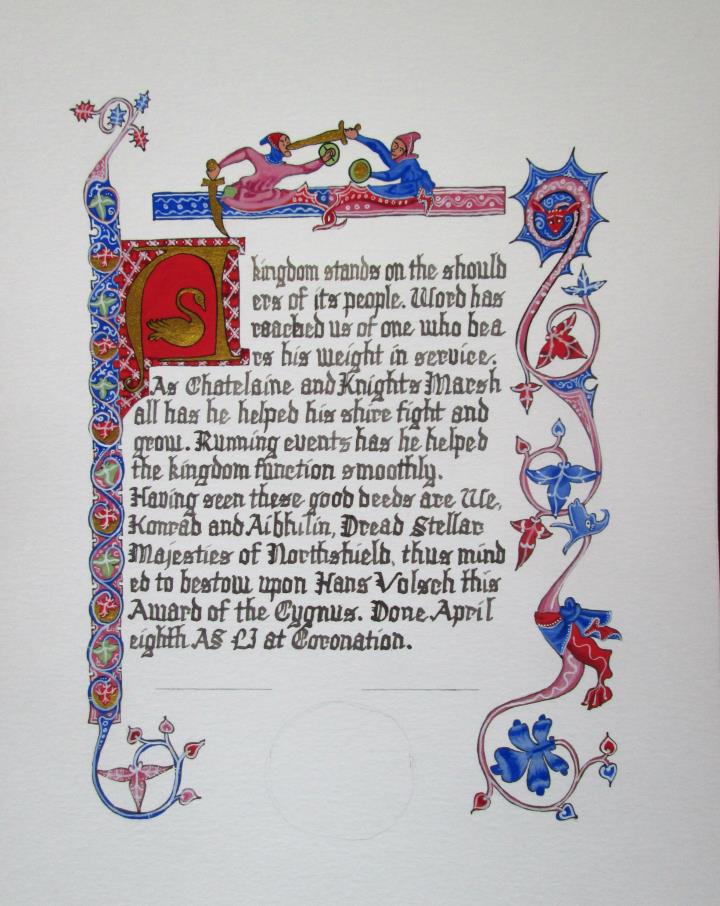 A kingdom stands on the should
ers of its people. Word has
reached us of one who bea
rs his weight in service.
As Chatelaine and Knights Marsh
all has he helped his shire fight and
grow. Running events has he helped
the kingdom function smoothly.
Having seen these good deeds are We,
Konrad and Aibhilin, Dread Stellar
Majesties of Northshield, thus mind
ed to bestow upon Hans Volsch this
Award of the Cygnus. Done April
eighth AS LI at Coronation.